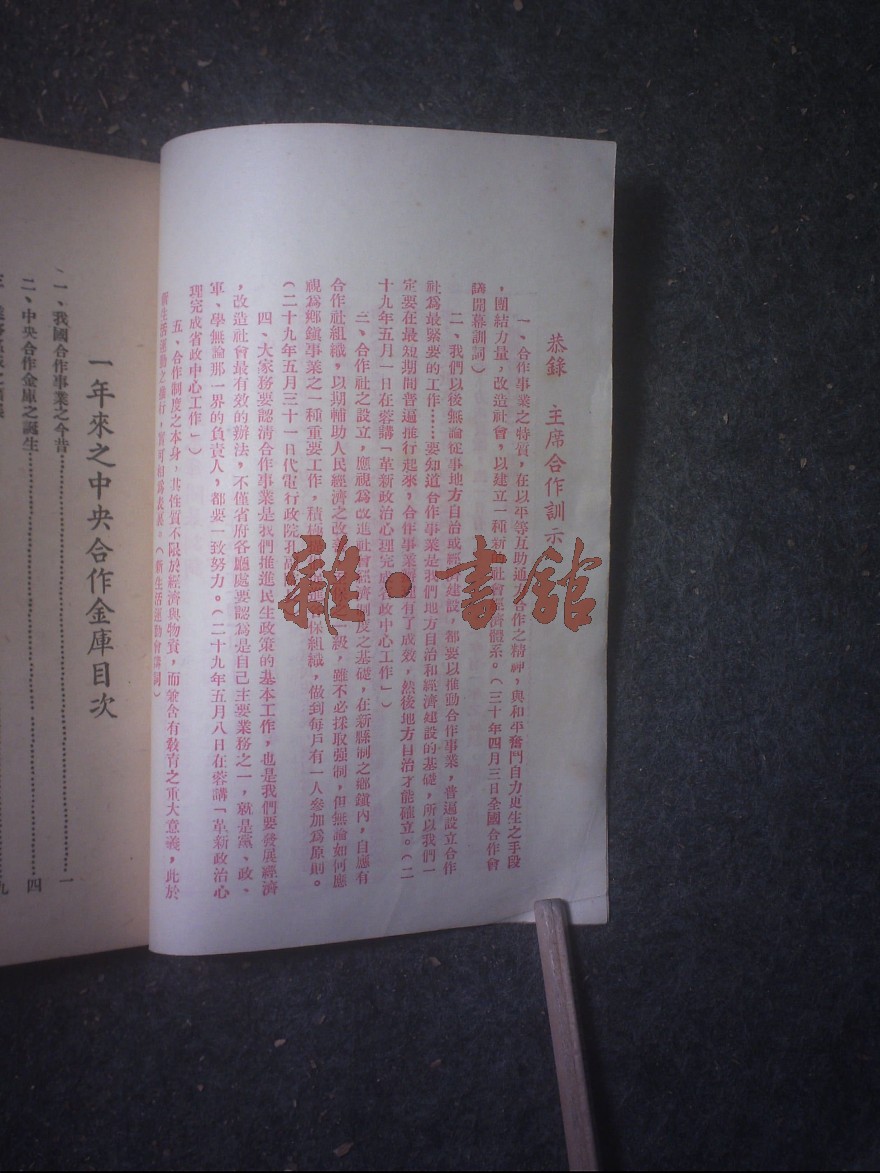 恭錄 主席合作訓示
一、合作事業之特質，在以平等互助通力合作之精神，與和平奮鬥自力更生之手段
，團結力量，改造社會，以建立一種新的社會經濟體系。（三十年四月三日全國合作會
議開幕訓詞）
二、我們以後無論從事地方自治或經濟建設，都要以推動合作事業，普遍設立合作
社爲最緊要的工作……要知道合作事業是我們地方自治和經濟建設的基礎，所以我們一
定要在最短期間普遍推行起來，合作事業有了成效，然後地方自治才能確立。（二
十九年五月一日在蓉講「革新政治心理完成省政中心工作」）
三、合作社之設立，應視爲改進社會經濟制度之基礎，在新縣制之鄉鎭內，自應有
合作社組織，以期輔助人民經濟之改級，雖不必採取强制，但無論如何應
視爲鄉鎭事業之一種重要工作，積極保組織，做到每戶有一人參加爲原則。
（二十九年五月三十一日代電行政院孔
四、大家務要認清合作事業是我們推進民生政策的基本工作，也是我們要發展經濟
，改造社會最有效的辦法，不僅省府各廳處要認爲是自己主要業務之一，就是黨、政、
軍、學無論那一界的負責人，都要一致努力。（二十九年五月八日在蓉講「革新政治心
理完成省政中心工作」）
五、合作制度之本身，其性質不限於經濟與物質，而兼含有教育之重大意義，此於
新生活運動之推行，實可相爲表裏。（新生活運動會講詞）
雜·書館
一年來之中央合作金庫目次
一、我國合作事業之今昔……一
二、中央合作金庫之誕生……四
三、……九